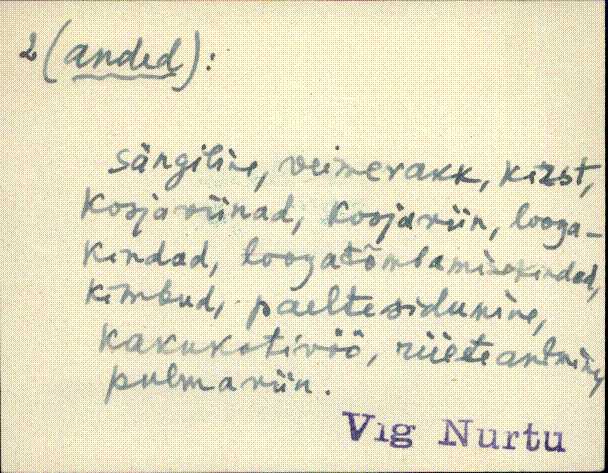 2 (anded):
sängiline, veimevakk, kirst,
kosjaviinad, kosjaviin, looga-
kindad, loogatõmbamisekindad,
kimbud, paeltesidumine,
kakukotivöö, riieteandmine,
pulmaviin.
Vig Nurtu